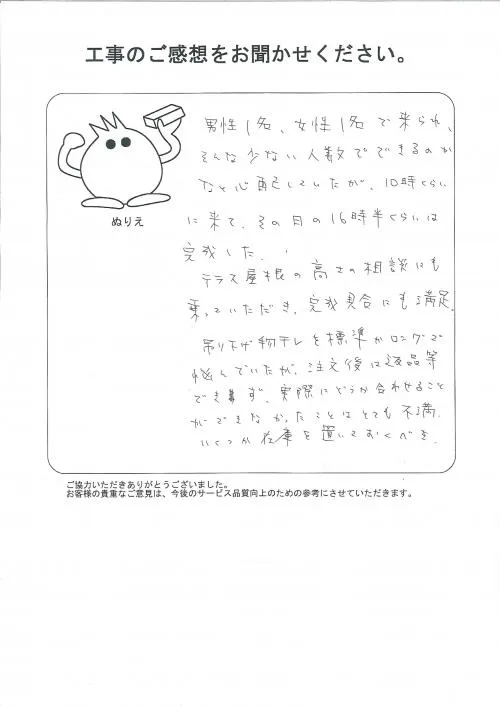 工事のご感想をお聞かせください。
ぬりえ
男性1名、女性1名で来られ、
そんな少ない人数でできるのか
なと心配していたが、10時くらい
に来て、その日の16時半くらいは
完成した。
テラス屋根の高さの相談にも
乗っていただき、完成具合にも満足。
吊り下げ物干しを標準かロングで
悩んでいたが、注文後は返品等
できず、実際にどうか合わせること
ができなかったことはとても不満。
いくつか在庫を置いておくべき。
ご協力いただきありがとうございました。
お客様の貴重なご意見は、今後のサービス品質向上のための参考にさせていただきます。